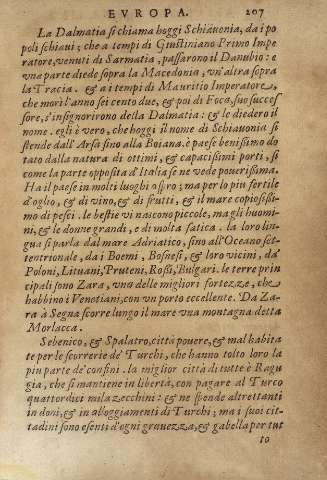 EVROPA. 207
La Dalmatia si chiama hoggi Schiauonia, da i po
poli schiaui; che a tempi di Giustiniano Primo Impe
ratore, venuti di Sarmatia, passarono il Danubio: e
vna parte diede sopra la Macedonia, vn'altra sopra
la Tracia. & a i tempi di Mauritio Imperatore,
che morì l'anno sei cento due, & poi di Foca, suo succes
sore, s'insignorirono della Dalmatia: & le diedero il
nome. egli è vero, che hoggi il nome di Schiauonia si
stende dall'Arsa sino alla Boiana. è paese benissimo do
tato dalla natura di ottimi, & capacissimi porti, sì
come la parte opposita d'Italia se ne vede pouerissima.
Ha il paese in molti luoghi aspro; ma per lo piu fertile
d'oglio, & di vino, & di frutti, & il mare copiosissi-
mo di pesci. le bestie vi nascono piccole, ma gli huomi
ni, & le donne grandi, e di molta fatica. la loro lin-
gua si parla dal mare Adriatico, sino all'Oceano set-
tentrionale, da i Boemi, Bosnesi, & loro vicini, da'
Poloni, Lituani, Pruteni, Rossi, Bulgari. le terre prin
cipali sono Zara, vna delle migliori fortezze, che
habbino i Venetiani, con vn porto eccellente. Da Za-
ra à Segna scorre lungo il mare vna montagna detta
Morlacca.
Sebenico, & Spalatro, città pouere, & mal habita
te per le scorrerie de' Turchi, che hanno tolto loro la
piu parte de' confini. la miglior città di tutte è Ragu
gia, che si mantiene in libertà, con pagare al Turco
quattordici mila zecchini: & ne spende altrettanti
in doni, & in alloggiamenti di Turchi; ma i suoi cit-
tadini sono esenti d'ogni grauezza, & gabella per tut
to